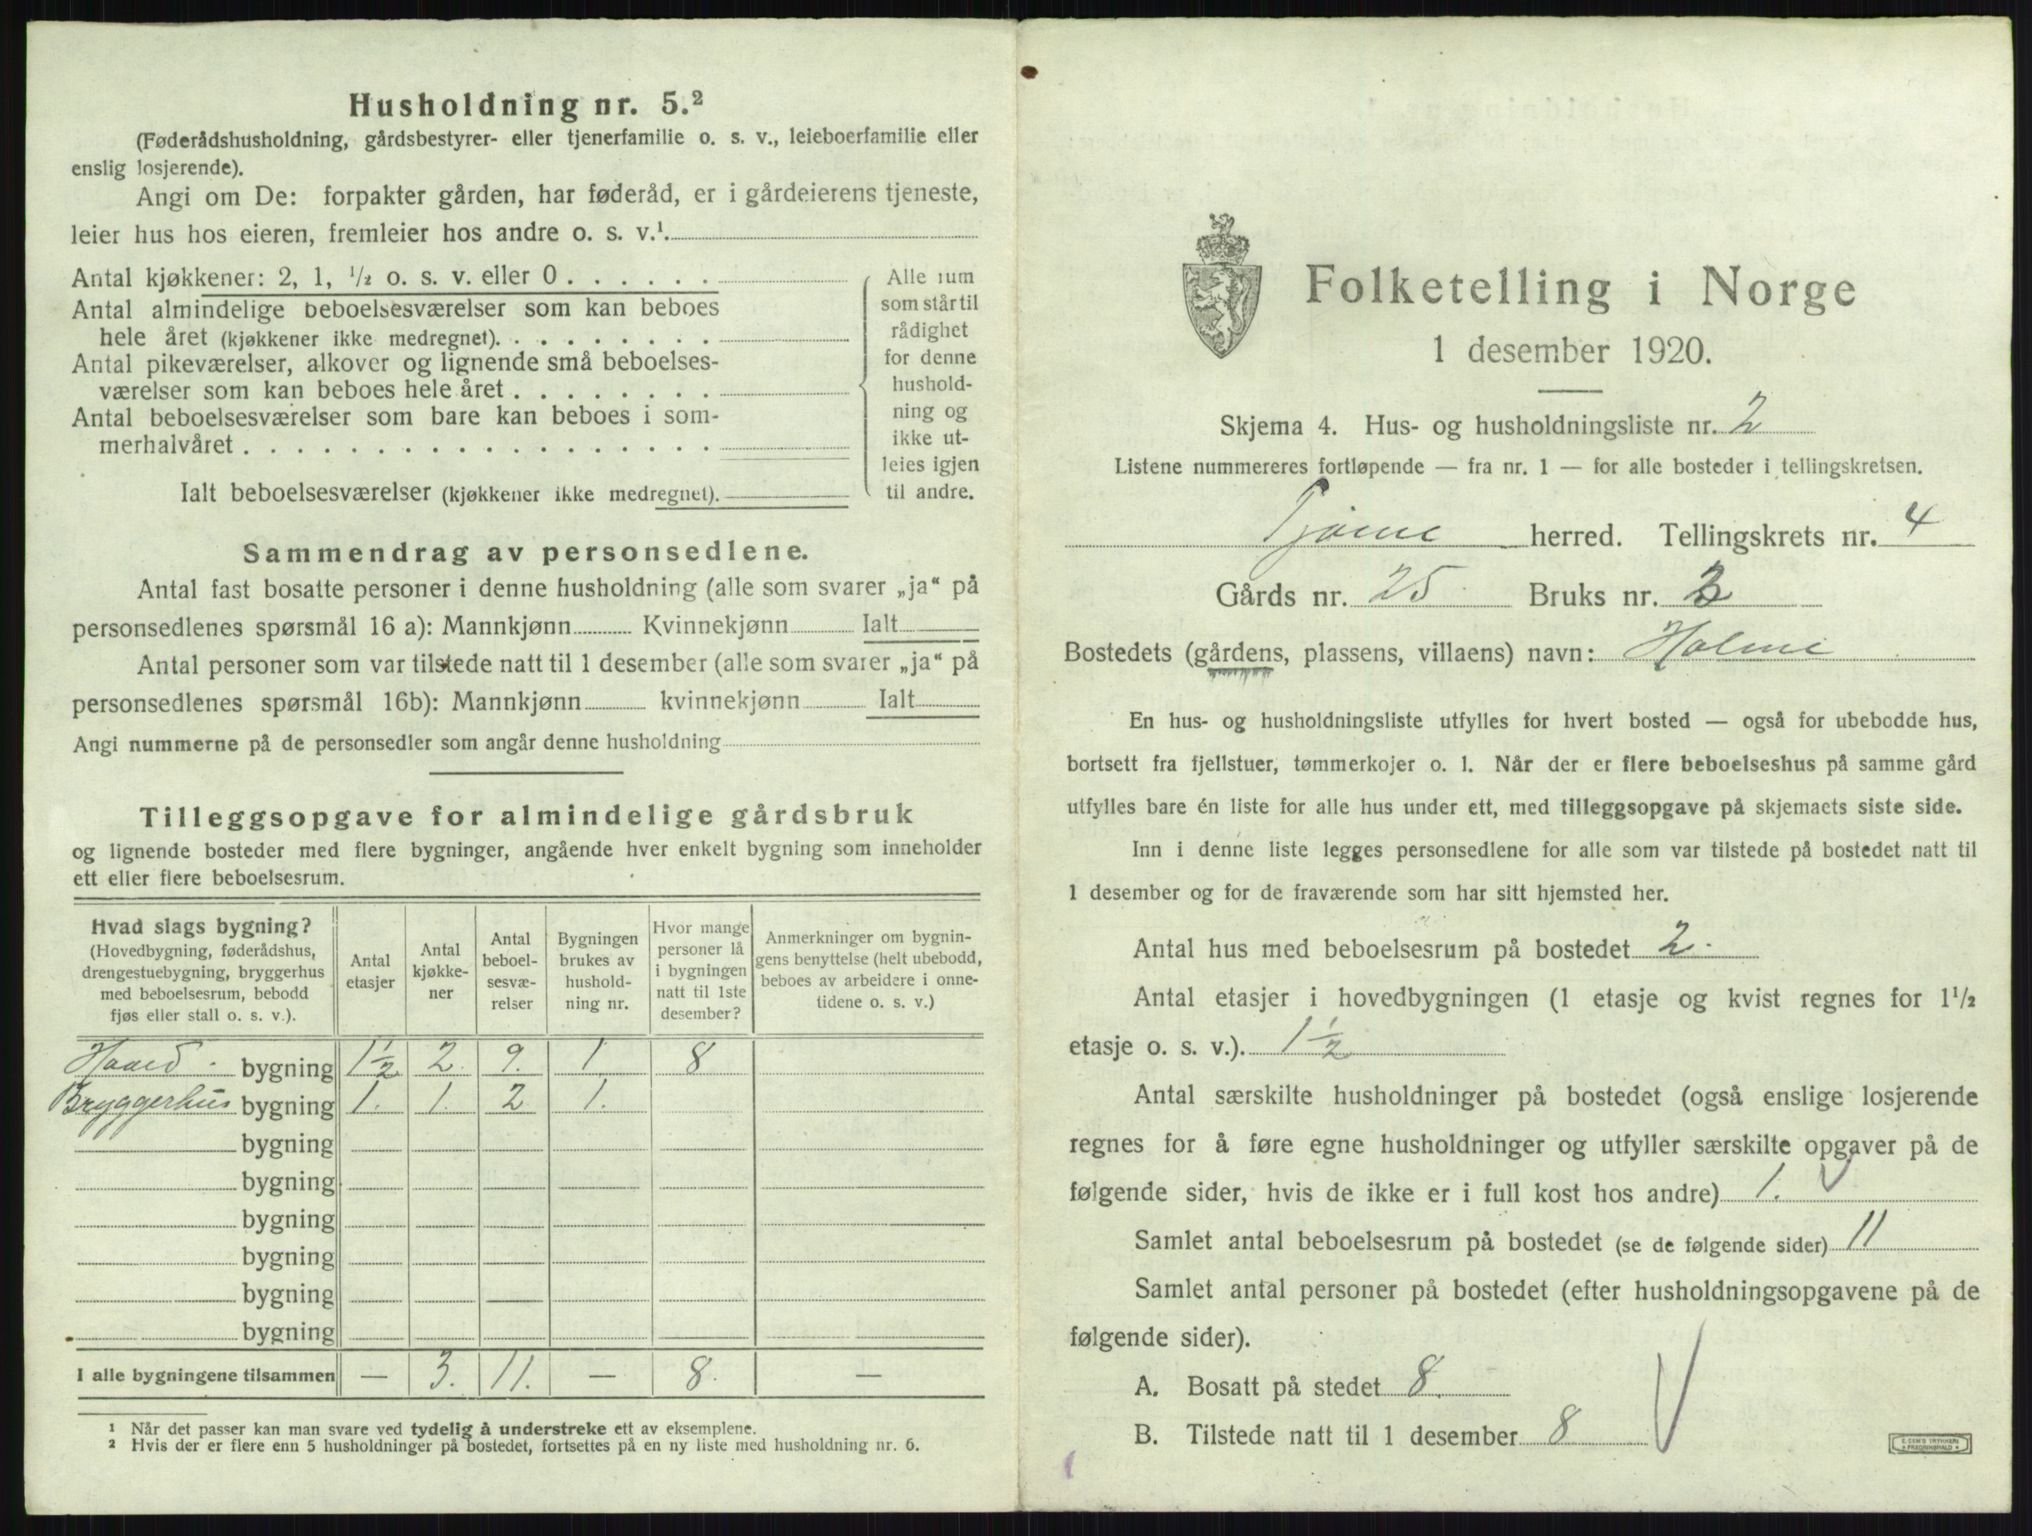 Husholdning nr. 5.²
(Føderådshusholdning, gårdsbestyrer- eller tjenerfamilie o. s. v., leieboerfamilie eller
enslig losjerende).
Angi om De: forpakter gården, har føderåd, er i gårdeierens tjeneste,
leier hus hos eieren, fremleier hos andre o. s. v.¹.
Antal kjøkkener: 2, 1, ½ o. s. v. eller 0 . . . . . .
Antal almindelige beboelsesværelser som kan beboes
hele året (kjøkkener ikke medregnet). . . . . . . . .
Antal pikeværelser, alkover og lignende små beboelses-
værelser som kan beboes hele året . . . . . . . .
Antal beboelsesværelser som bare kan beboes i som-
merhalvåret . . . . . . . . . . . . . . . . . .
Ialt beboelsesværelser (kjøkkener ikke medregnet).
Alle rum
som står til
rådighet
for denne
hushold-
ning og
ikke ut-
leies igjen
til andre.
Sammendrag av personsedlene.
Antal fast bosatte personer i denne husholdning (alle som svarer „ja“ på
personsedlenes spørsmål 16 a): Mannkjønn Kvinnekjønn Ialt
Antal personer som var tilstede natt til 1 desember (alle som svarer „ja“ på
personsedlenes spørsmål 16b): Mannkjønn kvinnekjønn Ialt
Angi nummerne på de personsedler som angår denne husholdning
Tilleggsopgave for almindelige gårdsbruk
og lignende bosteder med flere bygninger, angående hver enkelt bygning som inneholder
ett eller flere beboelsesrum.
Hvad slags bygning?
(Hovedbygning, føderådshus,
drengestuebygning, bryggerhus
med beboelsesrum, bebodd
fjøs eller stall o. s. v.).
Antal
etasjer
Antal
kjøkke-
ner
Antal
beboel-
sesvæ-
relser
Bygningen
brukes av
hushold-
ning nr.
Hvor mange
personer lå
i bygningen
natt til 1ste
desember?
Anmerkninger om bygnin-
gens benyttelse (helt ubebodd,
beboes av arbeidere i onne-
tidene o. s. v.)
bygning 1½ 2. 9. 1. 8
Bryggerhus bygning 1. 1. 2 1.
bygning
bygning
bygning
bygning
bygning
bygning
I alle bygningene tilsammen — 3. 11. — 8. —
¹ Når det passer kan man svare ved tydelig å understreke ett av eksemplene.
² Hvis der er flere enn 5 husholdninger på bostedet, fortsettes på en ny liste med husholdning nr. 6.
Folketelling i Norge
1 desember 1920.
Skjema 4. Hus- og husholdningsliste nr. 2
Listene nummereres fortløpende — fra nr. 1 — for alle bosteder i tellingskretsen.
Tjøme herred. Tellingskrets nr. 4
Gårds nr. 25. Bruks nr. 3
Bostedets (gårdens, plassens, villaens) navn: Holme
En hus- og husholdningsliste utfylles for hvert bosted — også for ubebodde hus,
bortsett fra fjellstuer, tømmerkojer o. l. Når der er flere beboelseshus på samme gård
utfylles bare én liste for alle hus under ett, med tilleggsopgave på skjemaets siste side.
Inn i denne liste legges personsedlene for alle som var tilstede på bostedet natt til
1 desember og for de fraværende som har sitt hjemsted her.
Antal hus med beboelsesrum på bostedet 2.
Antal etasjer i hovedbygningen (1 etasje og kvist regnes for 1½
etasje o. s. v.). 1½
Antal særskilte husholdninger på bostedet (også enslige losjerende
regnes for å føre egne husholdninger og utfyller særskilte opgaver på de
følgende sider, hvis de ikke er i full kost hos andre) 1.
Samlet antal beboelsesrum på bostedet (se de følgende sider) 11
Samlet antal personer på bostedet (efter husholdningsopgavene på de
følgende sider).
A. Bosatt på stedet 8.
B. Tilstede natt til 1 desember 8